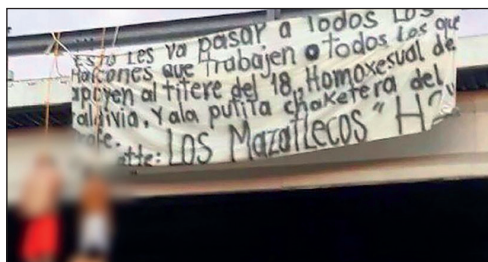 ESTO LES VA pasar a Todos Los
Halcones que Trabajen o todos Los que
apoyen al titere del 18, Homoxesual de
aldivia, Yala putita chaketera del
atte: LOS MazatLecos "H2"